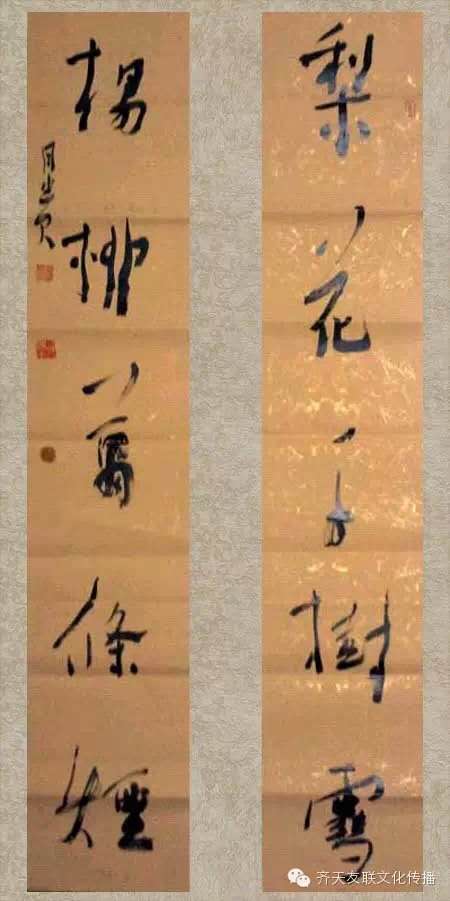 梨花千樹雪
楊柳萬條煙
齐天友联文化传播